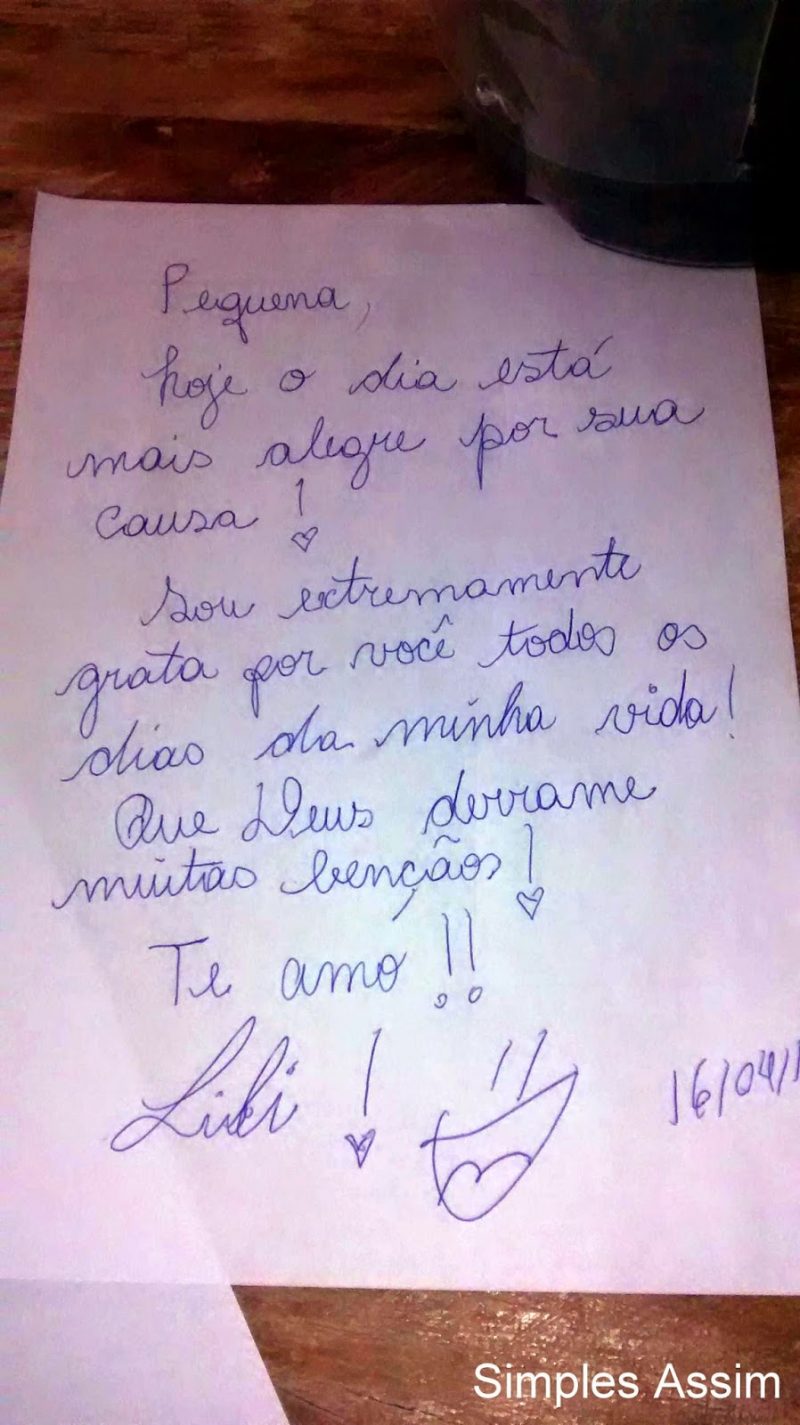 Pequena,
hoje o dia está
mais alegre por sua
causa!
Sou extremamente
grata por você todos os
dias da minha vida!
Que Deus derrame
muitas bençãos!
Te amo!!
Lili!
16/04/1
Simples Assim